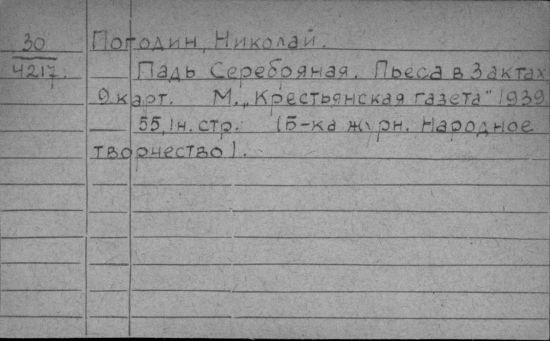 30 Погодин, Николай.
4217. Падь Серебряная. Пьеса в 3 актах
9 карт. М., „Крестьянская газета" 1939
55, 1 н. стр. (Б-ка журн. Народное
творчество).